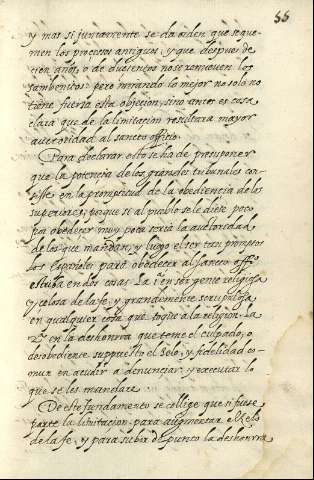 55
y mas si juntamente se da orden que se que
men los processos antiguos, y que despues de
cien años, o de duzientos no se renueven los
sambenitos pero mirando lo mejor no solo no
tiene fuersa esta objecion, sino antes es cosa
clara que de la limitacion resultara mayor
auctoridad al sancto officio.
Para declarar esto se ha de presuponer
que la potencia de los grandes tribunales con
siste en la promptitud de la obediencia de los
superiores, porque si al pueblo se le diese poco
por obedecer muy poca seria la auctoridad
de los que mandan, y luego el ser tan promptos
los Españoles para obedecer al sancto offº
estriba en dos cosas. La 1ª en ser gente religiosa
y celosa de la fe, y grandemente scrupulosa
en qualquier cosa que toque a la religion. La
2ª en la deshonrra que teme el culpado, o
desobediente, suppuesto el zelo, y fidelidad co-
mun en acudir a denunciar, y executar lo
que se les mandare.
De este fundamento se collige que si fuese
parte la limitacion para augmentar el zelo
de la fe, y para subir de punto la deshonrra